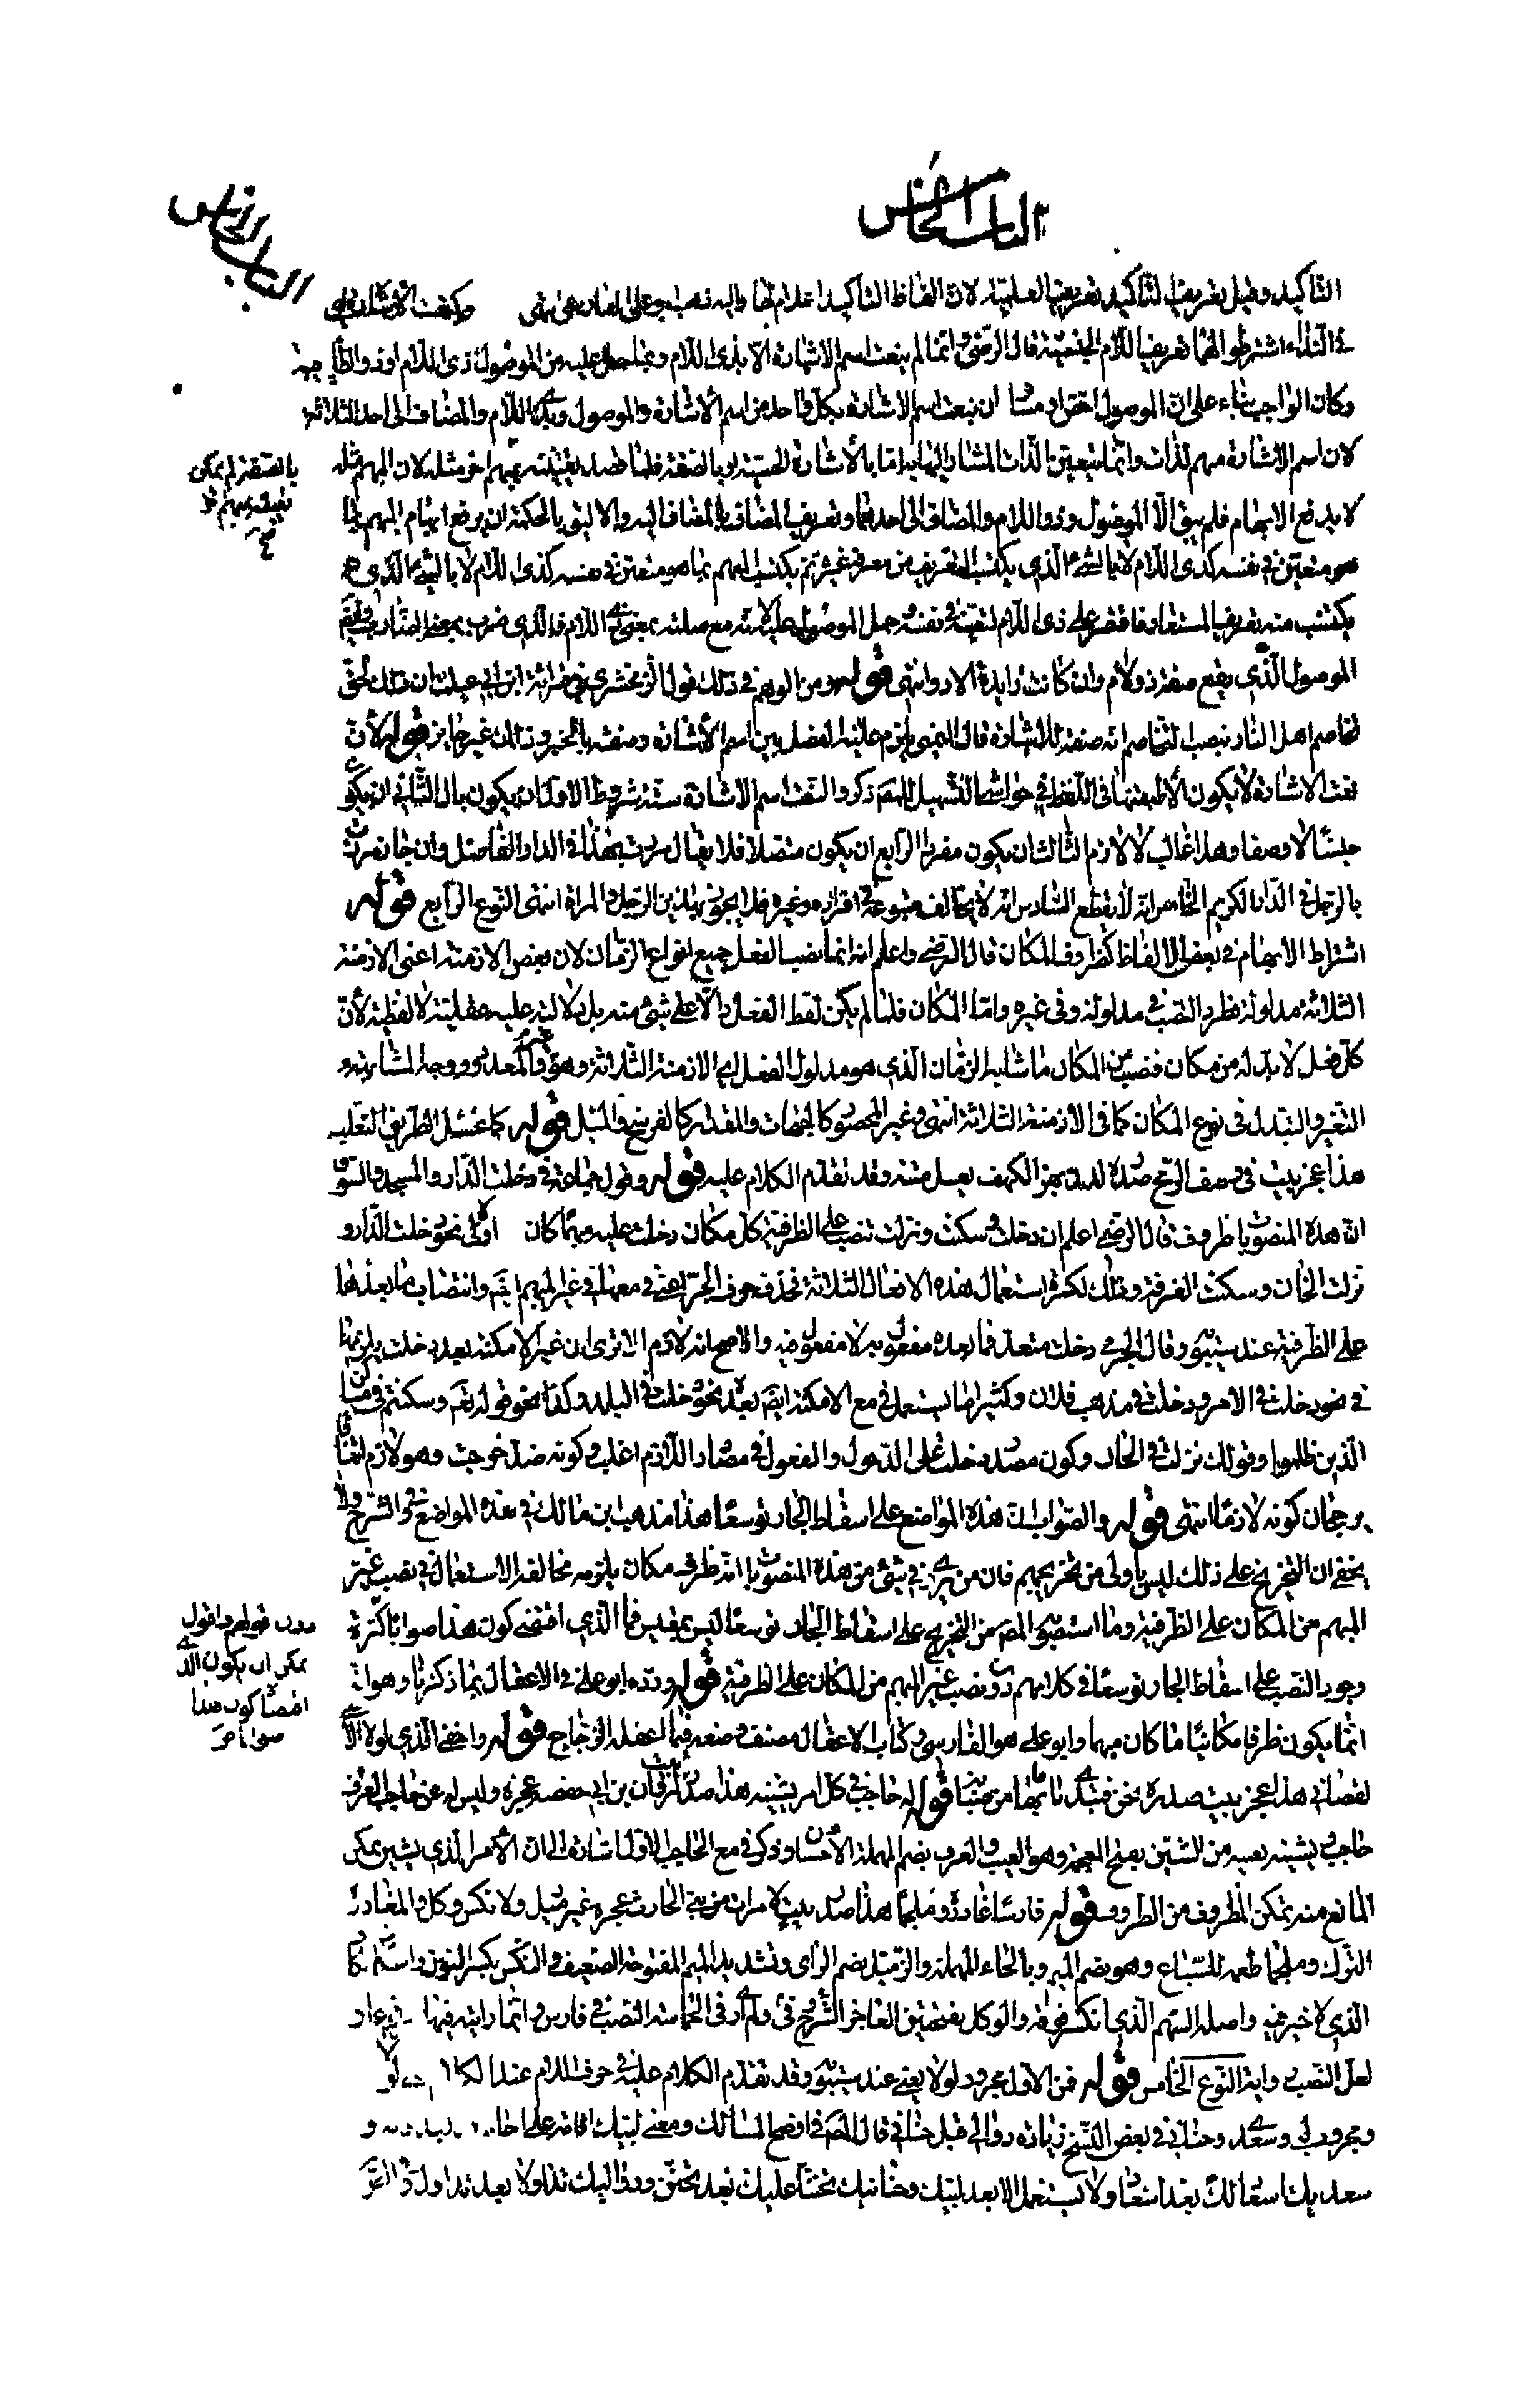 الباب الخامس
الباب الخامس
التأكيد وقيل تعريف التأكيد تعريفها العلمية لان الفاظ التأكيد اعلام لها واليه ذهب وكنعت الاشارة
في النداء اشترطوا لهما تعريف اللام الجنسية قال الرضي وانما لم ينعت اسم الاشارة الا بذي اللام وبما حمل عليه من الموصول ذي اللام او ذو الطائية
وكان الواجب بناء على ان الموصول اعرف او مساو ان ينعت اسم الاشارة بكل واحد من اسم الاشارة والموصول وبذي اللام والمضاف الى احد الثلاثة
لان اسم الاشارة مبهم الذات وانما يتعين الذات المشار اليها به اما بالاشارة الحسية او بالصفة فلما قصد تعيينه بمبهم اخر مثله لان المبهم مثله
بالصفة لم يمكن
تعيينه بمبهم اخر
صح
لا يدفع الابهام فلم يبق الا الموصول وذو اللام والمضاف الى احدهما وتعريف المضاف بالمضاف اليه والاليق بالحكمة ان يرفع ابهام المبهم بما
هو متعين في نفسه كذي اللام لا بالشيء الذي يكتسب التعريف من معرف غيره ثم يكتسب المبهم بما هو متعين في نفسه كذي اللام لا بالشيء الذي
يكتسب منه تعريفه المستعار فاقتصر على ذي اللام لتعينه في نفسه وحمل الموصول عليه لانه مع صلته بمعنى ذي اللام فالذي ضرب بمعنى الضارب
الموصول الذي يقع صفة ذو لام وان كانت زايدة الا ذو انتهى قوله ومن الوهم في ذلك قول الزمخشري في قرائة ابن ابي عبلة ان ذلك لحق
تخاصم اهل النار بنصب تخاصم انه صفة للاشارة قال اليمني يلزم عليه الفصل بين اسم الاشارة وصفته بالخبر وذلك غير جايز قوله لان
نعت الاشارة لا يكون الا طبقها في اللفظ في حواشي التسهيل للمص ذكروا لنعت اسم الاشارة ستة شروط الاول ان يكون بال الثاني ان يكون
جنسا لا وصفا وهذا غالب لا لازم الثالث ان يكون مفردا الرابع ان يكون متصلا فلا يقال مررت بهذا في الدار الفاضل وان جاز مررت
بالرجل في الدار الكريم الخامس انه لا يقطع السادس انه لا يخالف متبوعه في افراده وغيره فلا يجوز بهذين الرجل والمراة انتهى النوع الرابع قوله
اشتراط الابهام في بعض الالفاظ كظروف المكان قال الرضي واعلم انه انما نصب الفعل جميع انواع الزمان لان بعض الازمنة اعني الازمنة
الثلاثة مدلوله فطرد النصب في مدلوله وفي غيره واما المكان فلما لم يكن لفظ الفعل دالا على شيء منه بل دلالته عليه عقلية لا لفظية لان
كل فعل لا بد له من مكان فنصب من المكان ما شابه الزمان الذي هو مدلول الفعل اي الازمنة الثلاثة وهو غير والمعدود ووجه المشابهة
التغير والتبدل في نوع المكان كما في الازمنة الثلاثة انتهى وغير المحصور كالجهات والمقدار كالفرسخ والميل قوله كما عسل الطريق الثعلب
هذا عجز بيت في وصف الرمح صدره لدن بهز الكف يعسل متنه وقد تقدم الكلام عليه قوله وقول جماعة في دخلت الدار والمسجد والسوق
ان هذه المنصوبات ظروف قال الرضي اعلم ان دخلت وسكنت ونزلت تنصب على الظرفية كل مكان دخلت عليه مبهما كان اولا نحو دخلت الدار و
نزلت الخان وسكنت الغرفة وذلك لكثرة استعمال هذه الافعال الثلاثة فحذف حرف الجر اعني في معها في غير المبهم ايضا وانتصاب ما بعدها
على الظرفية عند سيبويه وقال الجرمي دخلت متعد فما بعده مفعول به لا مفعول فيه والاصح انه لازم الا ترى ان غير الامكنة بعد دخلت يلزمها
في نحو دخلت في الامر ودخلت في مذهب فلان وكثيرا ما يستعمل في مع الامكنة ايضا بعده نحو دخلت في البلد وكذا نحو قوله تعم وسكنتم في مساكن
الذين ظلموا وقولك نزلت في الخان وكون مصدر دخلت على الدخول والفعول في مصادر اللازم اغلب وكونه ضد خرجت وهو لازم اتفاقا
يرجحان كونه لازما انتهى قوله والصواب ان هذه المواضع على اسقاط الجار توسعا هذا مذهب ابن مالك في هذه المواضع وفي الشرح ولا
يخفى ان التخريج على ذلك ليس باولى من تخريجهم فان من يرى في شيء من هذه المنصوبات انه ظرف مكان يلزمه مخالفة الاستعمال في نصب غير
المبهم من المكان على الظرفية وما استصوبه المص من التخريج على اسقاط الجار توسعا ليس بمقيس فما الذي اقتضى كون هذا صوابا كثرة
دون قولهم واقول
يمكن ان يكون الذي
اقتضا كون هذا
صوابا
وجود النصب على اسقاط الجار توسعا في كلامهم دون نصب غير المبهم من المكان على الظرفية قوله ورده ابو علي في الاغفال بما ذكرنا وهو انه
انما يكون ظرفا مكانيا ما كان مبهما وابو علي هو الفارسي وكتاب الاغفال مصنف وضعه فيما اغفله الزجاج قوله واخفي الذي لولا الاسى
لقضاني هذا عجز بيت صدره تحن فتبدي ما بها من صبابة قوله له حاجب في كل امر يشينه هذا صدر بيت لمروان بن ابي حفصة وعجزه وليس له عن طالب العرف
حاجب ويشينه يعيبه من الشين بفتح المعجمة وهو العيب والعرف بضم المهملة الاحسان وذكر في مع الحاجب الاول اشارة الى ان الامر الذي يشين يمكن
المانع منه بتمكن المظروف من الظروف قوله فارسا غادروه ملحما هذا صدر بيت لامراة من بني الحارث عجزه غير زميل ولا نكس وكل والمغادرة
الترك وملحما طعمة للسباع وهو بضم الميم وبالحاء المهملة والزميل بضم الزاي وتشديد الميم المفتوحة الضعيف والنكس بكسر النون
الذي لا خير فيه واصله السهم الذي انكسر فوقه والوكل بفتحتين العاجز وفي الشرح ولم ار في الحماسة النصب في فارس وانما رايته فيها
لعل النصب رواية النوع الخامس قوله فمن الاول مجرور لولا يعني عند سيبويه وقد تقدم الكلام عليه في حرف اللام عند
ومجرور لبي وسعدي وحناني في بعض النسخ زيادة دوالي قبل حناني قال المص في اوضح المسالك ومعنى لبيك اقامة على
سعديك اسعادا لك بعد اسعاد ولا يستعمل الا بعد لبيك وحنانيك تحننا عليك بعد تحنن ودواليك تداولا بعد تداول